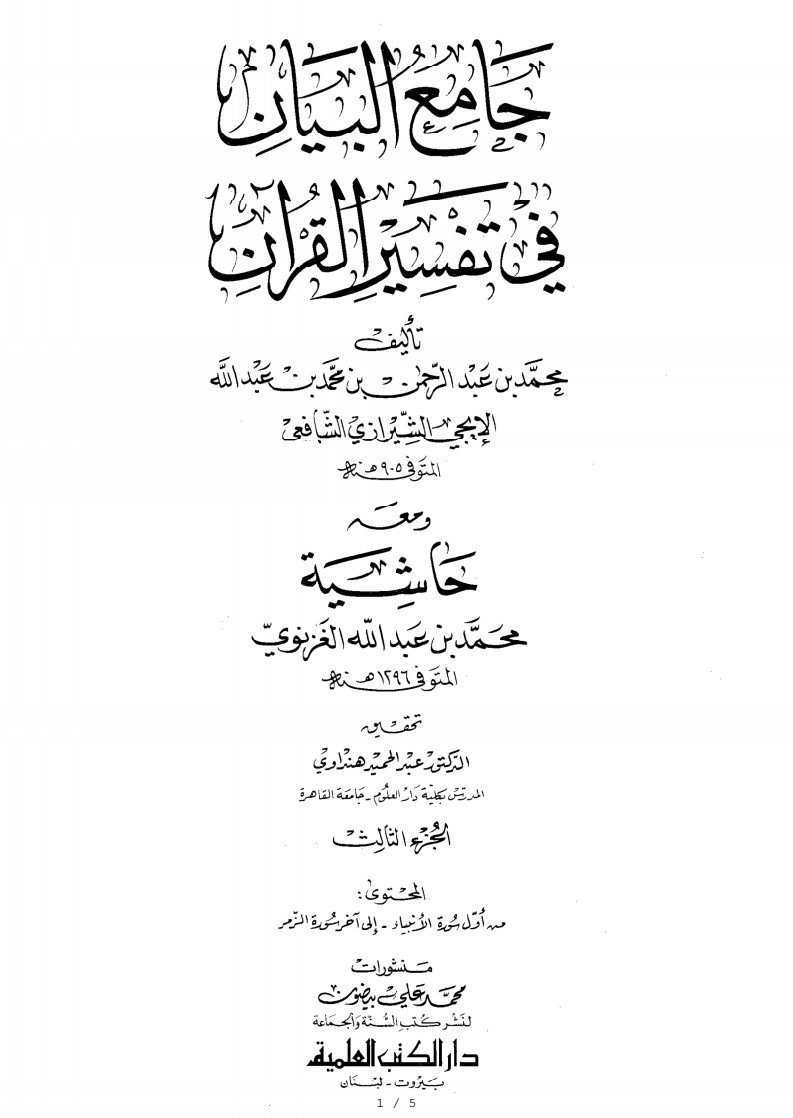 جَامِعُ البَيَانِ
فِي تَفْسِيرِ القُرْآنِ
تأليف
محمّد بن عَبْد الرّحمٰن بن محمَّد بن عَبْد الله
الإيجي الشِّيرازي الشَّافعي
المتَوفى ٩٠٥ هـنة
ومعَه
حَاشِيَة
محمَّد بن عَبد الله الغَزنويّ
المتَوفى ١٢٩٦ هـنة
تحقيق
الدكتور عبد الحميد هنداوي
المدرّس بكلية دَار العلُوم - جَامعَة القاهرة
الجُزء الثَّالِث
المحتوى:
من أوّل سُورة الأنبياء - إلى آخر سُورة الزّمر
منشورات
محمَّد عَلي بيضون
لنَشْر كُتبِ السُّنة وَالجمَاعة
دار الكتب العلمية
بَيْروت - لبْنان
1 / 5